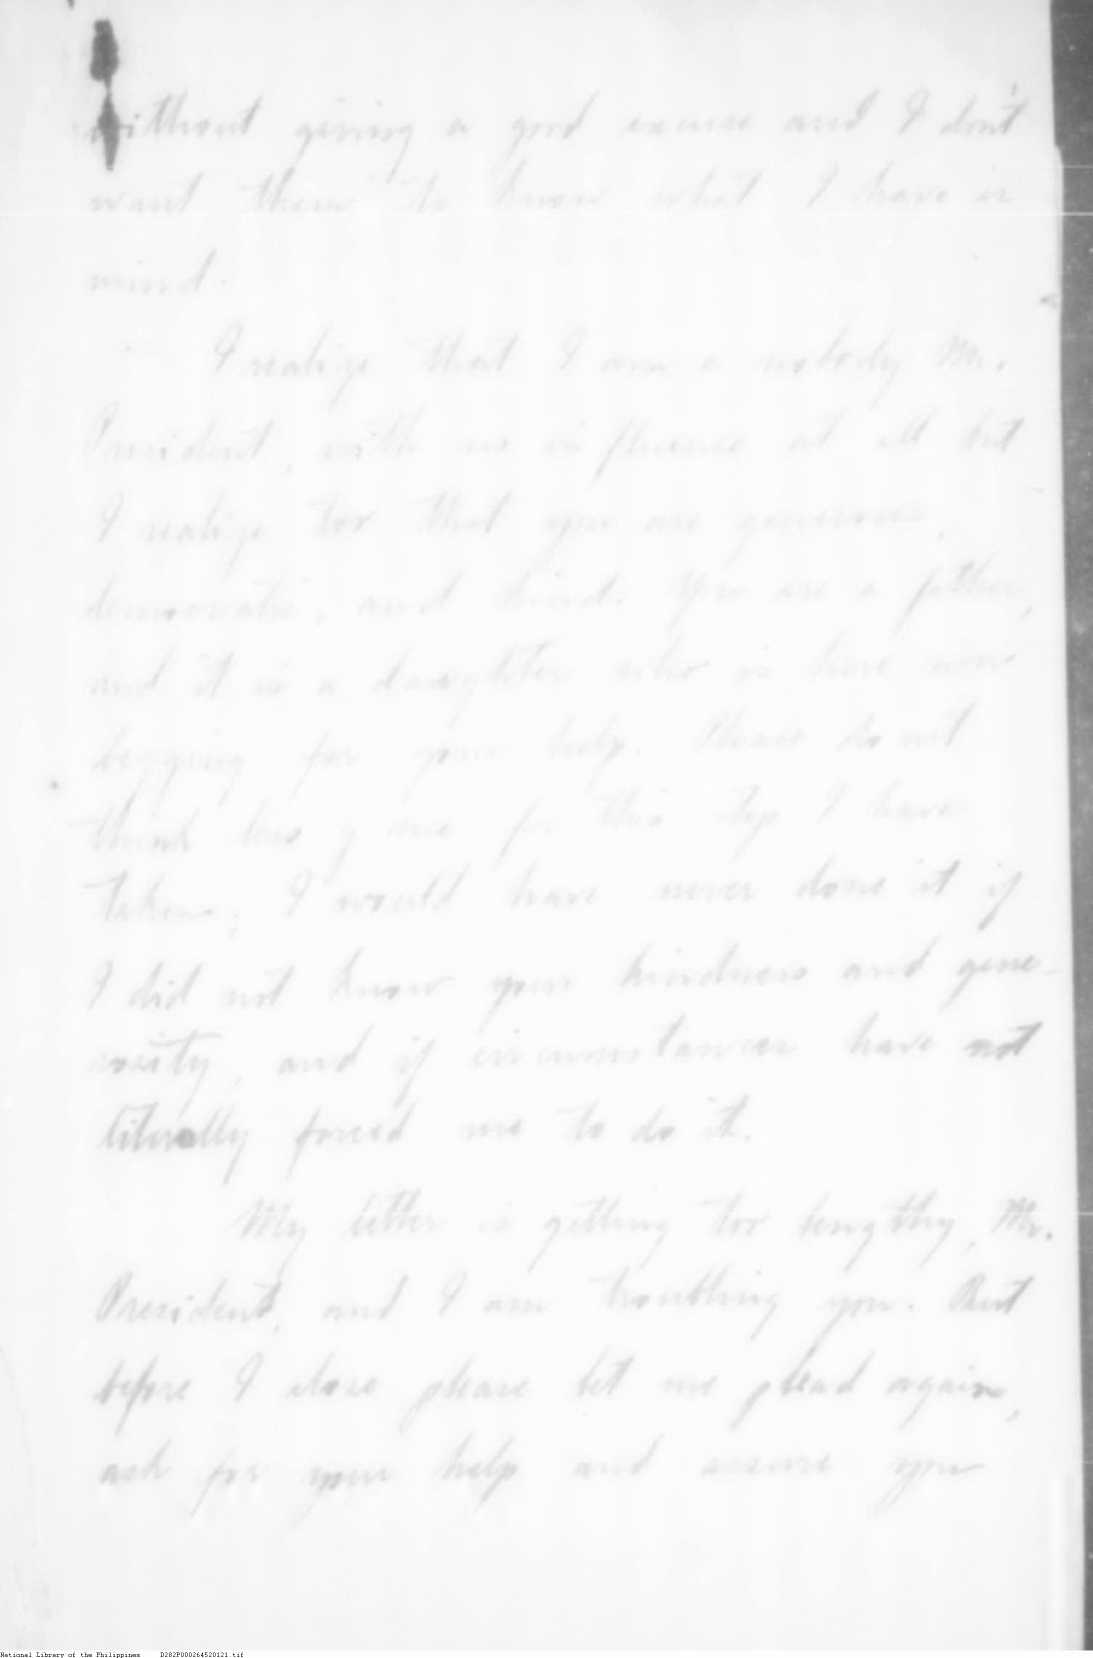 without giving a good excuse and I don't
want them to know what I have in
mind.
I realize that I am a nobody Mr.
President, with no influence at all but
I realize too that you are generous,
democratic, and kind. You are a father,
and it is a daughter who is here now
begging for your help. Please do not
think less of me for this step I have
taken; I would have never done it if
I did not know your kindness and gene-
rosity, and if circumstances have not
literally forced me to do it.
My letter is getting too lengthy, Mr.
President, and I am troubling you. But
before I close please let me plead again,
ask for your help and assure you
National Library of the Philippines D282P000264520121.tif